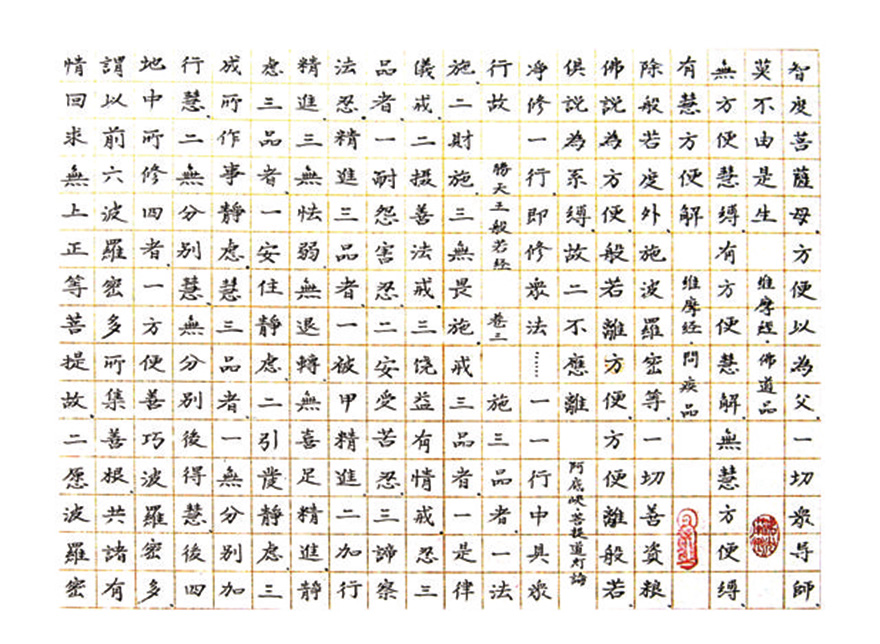 智度菩薩母方便以為父.一切衆导師.
莫不由是生 維摩經·佛道品
無方便慧縛.有方便慧解.無慧方便縛.
有慧方便解 維摩經·問疾品
除般若度外施波羅密等一切善資粮.
佛說為方便般若離方便.方便離般若.
俱説為系縛.故二不應離 阿底峡菩提道灯論
净修一行.即修衆法……一一行中具衆
行故 勝天王般若经 卷三 施三品者.一法
施.二財施.三無畏施.戒三品者.一是律
儀戒.二摄善法戒.三饶益有情戒.忍三
品者.一耐怨害忍.二安受苦忍.三諦察
法忍.精進三品者.一被甲精進.二加行
精進.三無怯弱無退轉無喜足精進.静
慮三品者.一安住靜慮.二引發静慮.三
成所作事靜慮.慧三品者.一無分别加
行慧.二無分别慧.無分别後得慧.後四
地中所修四者.一方便善巧波羅密多.
謂以前六波羅密多所集善根.共諸有
情回求無上正等菩提故.二愿波羅密